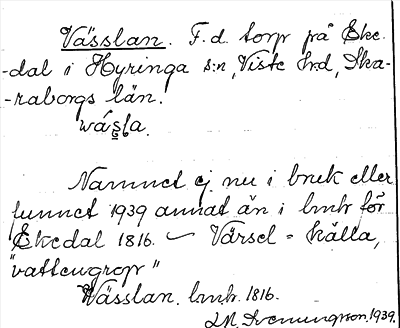 Vässlan. F.d. torp på Eke-
-dal i Hyringa s:n, Viste hrd, Ska-
-raborgs län.
wásla.
Namnet ej nu i bruk eller
funnet 1939 annat än i lmhr för
Ekedal 1816. Värsel = källa,
"vattengrop"
Wässlan. lmhr. 1816.
1939.